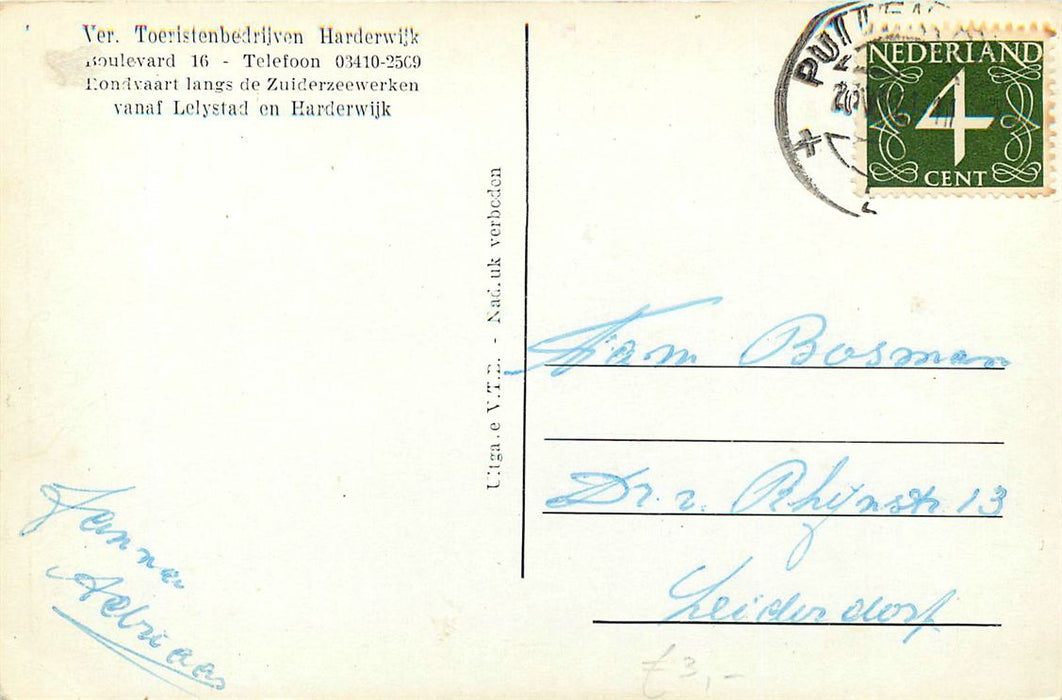 Ver. Toeristenbedrijven Harderwijk
Boulevard 16 - Telefoon 03410-2509
Rondvaart langs de Zuiderzeewerken
vanaf Lelystad en Harderwijk
Uitgave V.T.H. - Nadruk verboden
PUTTEN
NEDERLAND
4
CENT
Fam Bosman
Dr. v. Rhijnstr. 13
Leiderdorp
Janna
Adriaas
£ 3,-